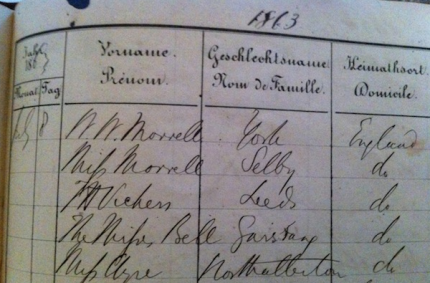 1863
Jahr 186 Vorname. Geschlechtsname Heimathsort.
Monat Tag Prénom. Nom de Famille. Domicile.
July 8 W. W. Morrell York England
Miss Morrell Selby do
Vickers Leeds do
The Misses Bell do
Miss Northallerton do